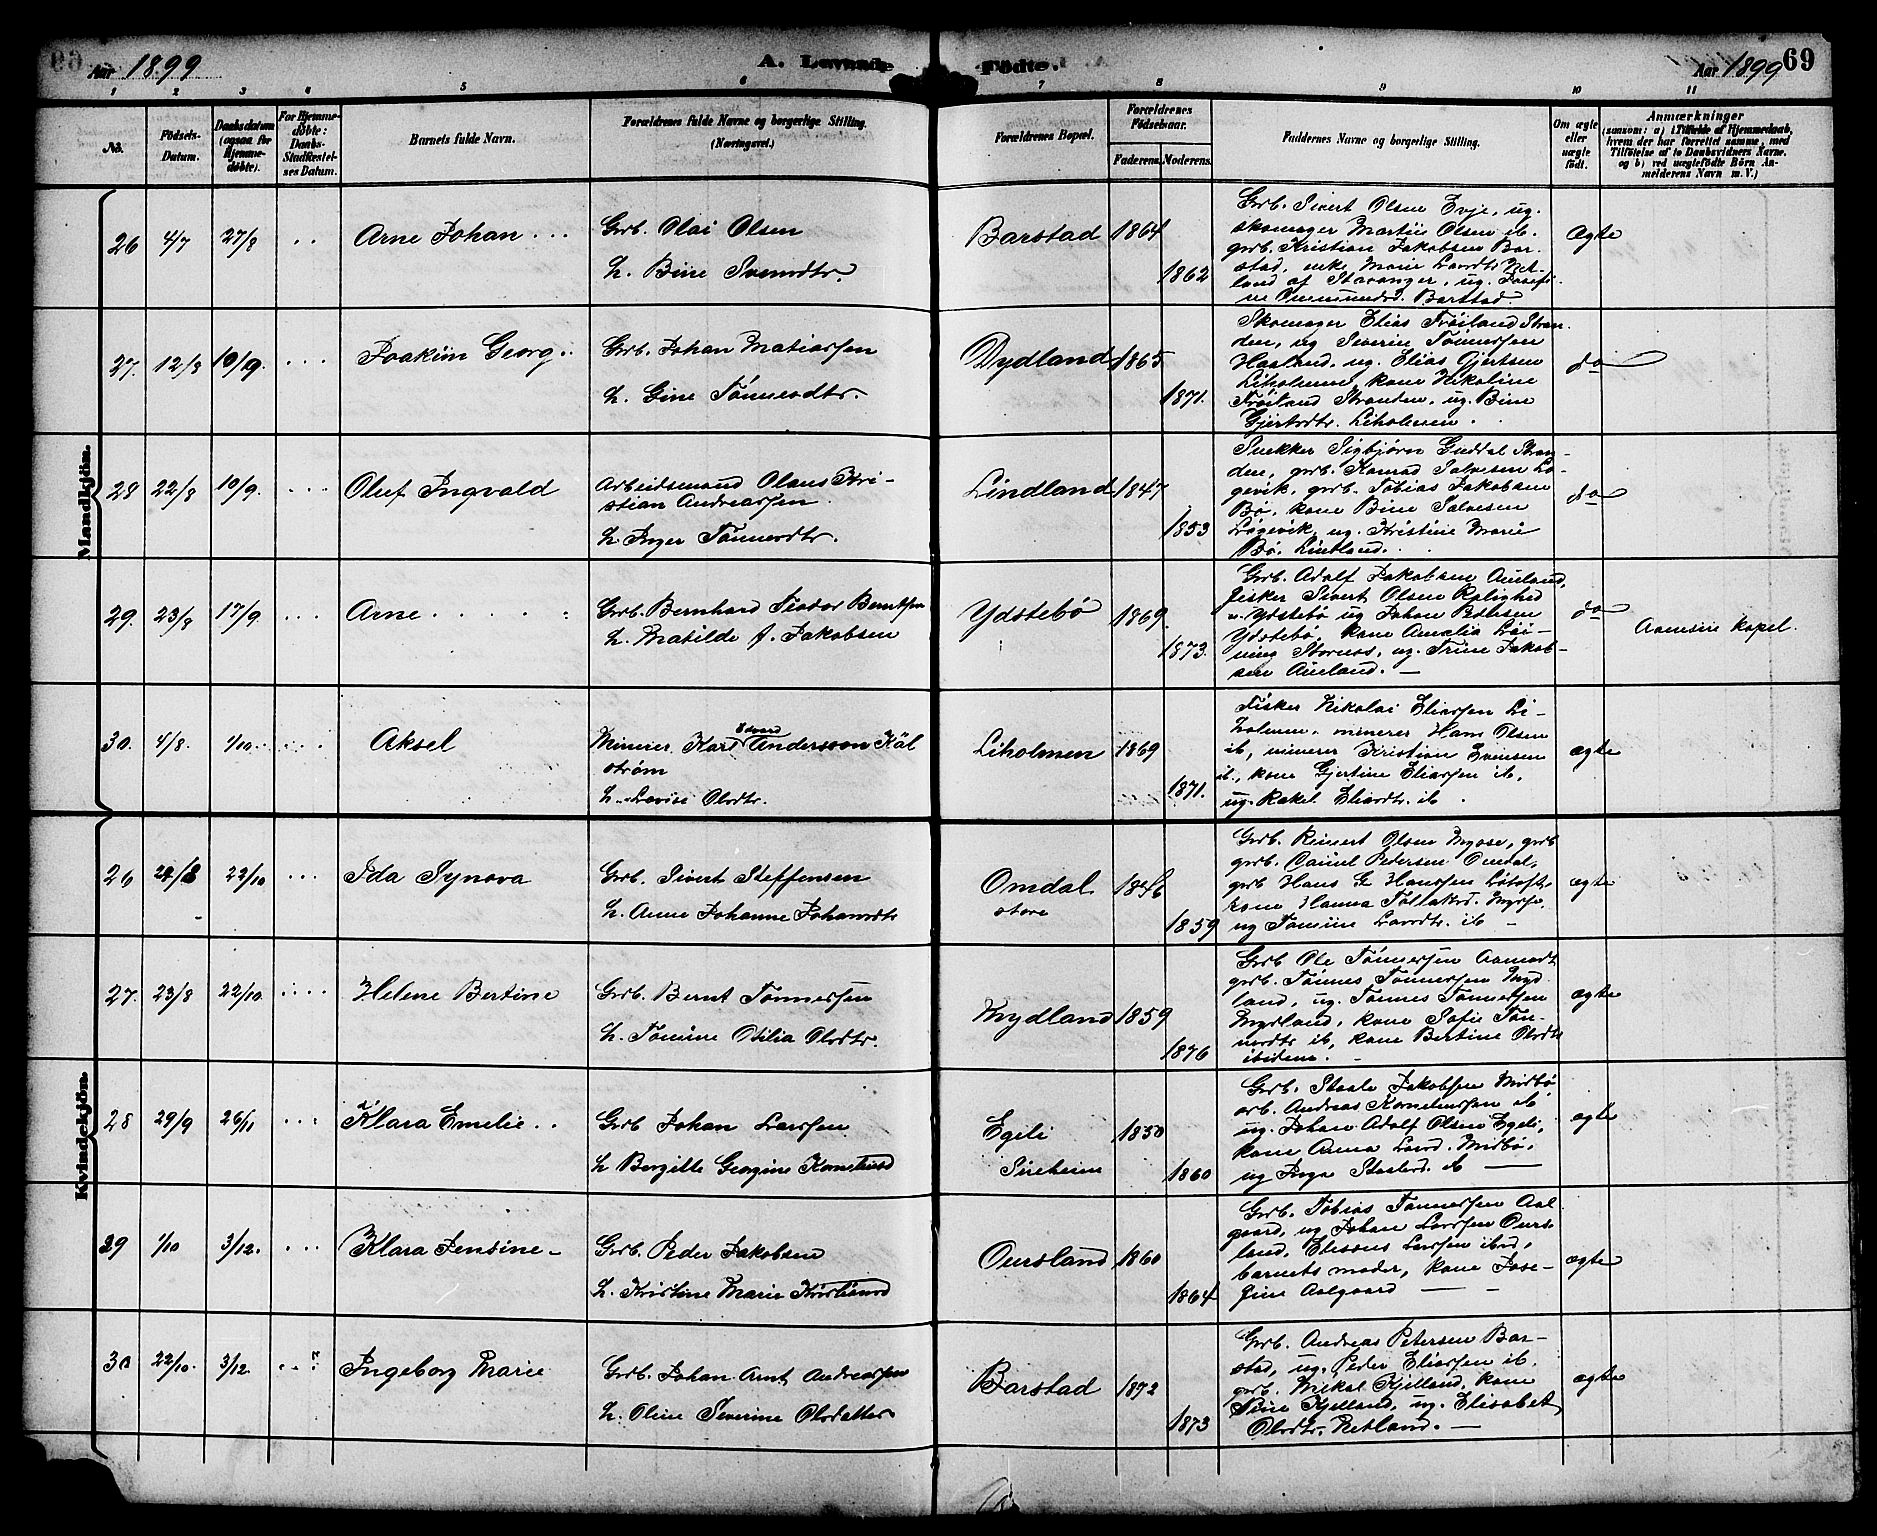 Aar 1899
A. Levende
Födte.
Aar 1899
69
1 2 3 4 5 6 7 8 9 10 11
No.
Födsels-
Datum.
Daabsdatum
(ogsaa for
Hjemme-
döbte).
For Hjemme-
döbte:
Daabs-
Stadfæstel-
ses Datum.
Barnets fulde Navn.
Forældrenes fulde Navne og borgerlige Stilling.
(Næringsvei.)
Forældrenes Bopæl.
Forældrenes
Födselsaar.
Faderens.
Moderens.
Faddernes Navne og borgerlige Stilling.
Om ægte
eller
uægte
födt.
Anmærkninger
(saasom: a) i Tilfælde af Hjemmedaab,
hvem der har forrettet samme, med
Tilföielse af to Daabsvidners Navne,
og b) ved uægtefödte Börn An-
melderens Navn m. V.)
Mandkjön.
26 4/7 27/8 Arne Johan
Grb. Olai Olsen
h. Bine
Barstad 1864
1862
Grb. Sivert Olsen Evje, ug.
skomager Martin Olsen ib.
grb. Kristian Jakobsen Bar-
stad, enke Marie
land af Stavanger, ug. Josefi-
ne Barstad
Ægte
27. 12/8 10/9. Joakim Georg
Grb. Johan Matiassen
h. Gine Tönnesdtr.
Dydland 1865
1871.
Skomager Elias Tröiland Stran-
den, ug Severine Tönnessen
Haaland, ug. Elias Gjertsen
Liholmen, kone Nikoline
Tröiland Stranden, ug. Bine
Gjertsdtr. Liholmen.
do
28 22/8 10/9. Oluf Ingvald
Arbeidsmand Olaus Kri-
stian Andreassen
h Inger Tönnesdtr.
Lindland 1847
1853
Snekker Sigbjörn Guddal Stran-
den, grb. Konrad Salvesen Lö-
gevik, grb. Tobias Jakobsen
Bö, kone Bine Salvesen
Lögevik, ug. Kristine Marie
Bö, Lindland.
do
29. 23/8 17/9. Arne
Grb. Bernhard Teodor Berntsen
h. Matilde f. Jakobsen
Ydstebö 1869
1873.
Grb. Adolf Jakobsen Aueland,
fisker Sivert Olsen Rolighed
Ydstebö ug Johan
Ydstebö, kone Amalia
Stornes, ug. Trine Jakob-
sen Aueland.
do
Aamsin kapel.
30. 4/8. 1/10. Aksel
Minerer Karl Edvard Andersson Käl
ström
h. Lovise Olsdtr.
Liholmen 1869
1871.
Fisker Nikolai Eliassen Li-
holmen, minerer Hans Olsen
ib, minerer Kristian Svensen
ib., kone Gjertine Eliassen ib,
ug. Rakel Eliasdtr. ib.
ægte
Kvindekjön.
26 24/8 22/10 Ida Synova
Grb. Sivert Steffensen
h. Anne Johanne Johannsdtr
Omdal
store
1846
1859
Grb. Reinert Olsen Mysse, grb
grb. Daniel Pedersen Omdal,
grb Hans G. Hanssen Lötoft,
kone Hanna Tollaksd. Mysse.
ug Tomine Larsdtr. ib
ægte
27. 23/8 22/10. Helene Bertine
Grb. Bernt Tönnessen
h. Tomine Otilia Olsdtr.
Mydland 1859
1876
Grb Ole Tönnessen Aamodt
grb. Tönnes Tönnessen Myd
land, ug. Tönnes Tönnessen
Mydland, kone Sofie Tön-
nesdtr ib, kone Bertine Olsdtr
ibidem.
ægte
28 29/9 26/11 Klara Emelie
Grb Johan Larssen
h Bergitte Georgine Korneliusd
Egeli
Sireheim
1850
1860
Grb. Staale Jakobsen Midbö
arb. Andreas Korneliussen ib
ug. Johan Adolf Olsen Egeli,
kone Anna Larsd. Midbö,
ug Inga Staalesd. ib
ægte
29 1/10 3/12. Klara Jensine
Grb. Peder Jakobsen
h. Kristine Marie Kristiansd
Oursland 1860
1864
Grb. Tobias Tönnessen Aal
gaard, ug Johan Larssen Ours
land, Elesæus Larssen ibid,
barnets moder, kone Jose-
fine Aalgaard
ægte
30 22/10. 3/12. Ingeborg Marie
Grb. Johan Arnt Andreassen
h. Oline Severine Olsdatter
Barstad 1872
1873
Grb. Andreas Petersen Bar-
stad, ug. Peder Eliassen ib.
grb. Mikal Kjelland, kone
Sine Kjelland, ug. Elisabet
Olsdtr. Netland.
ægte